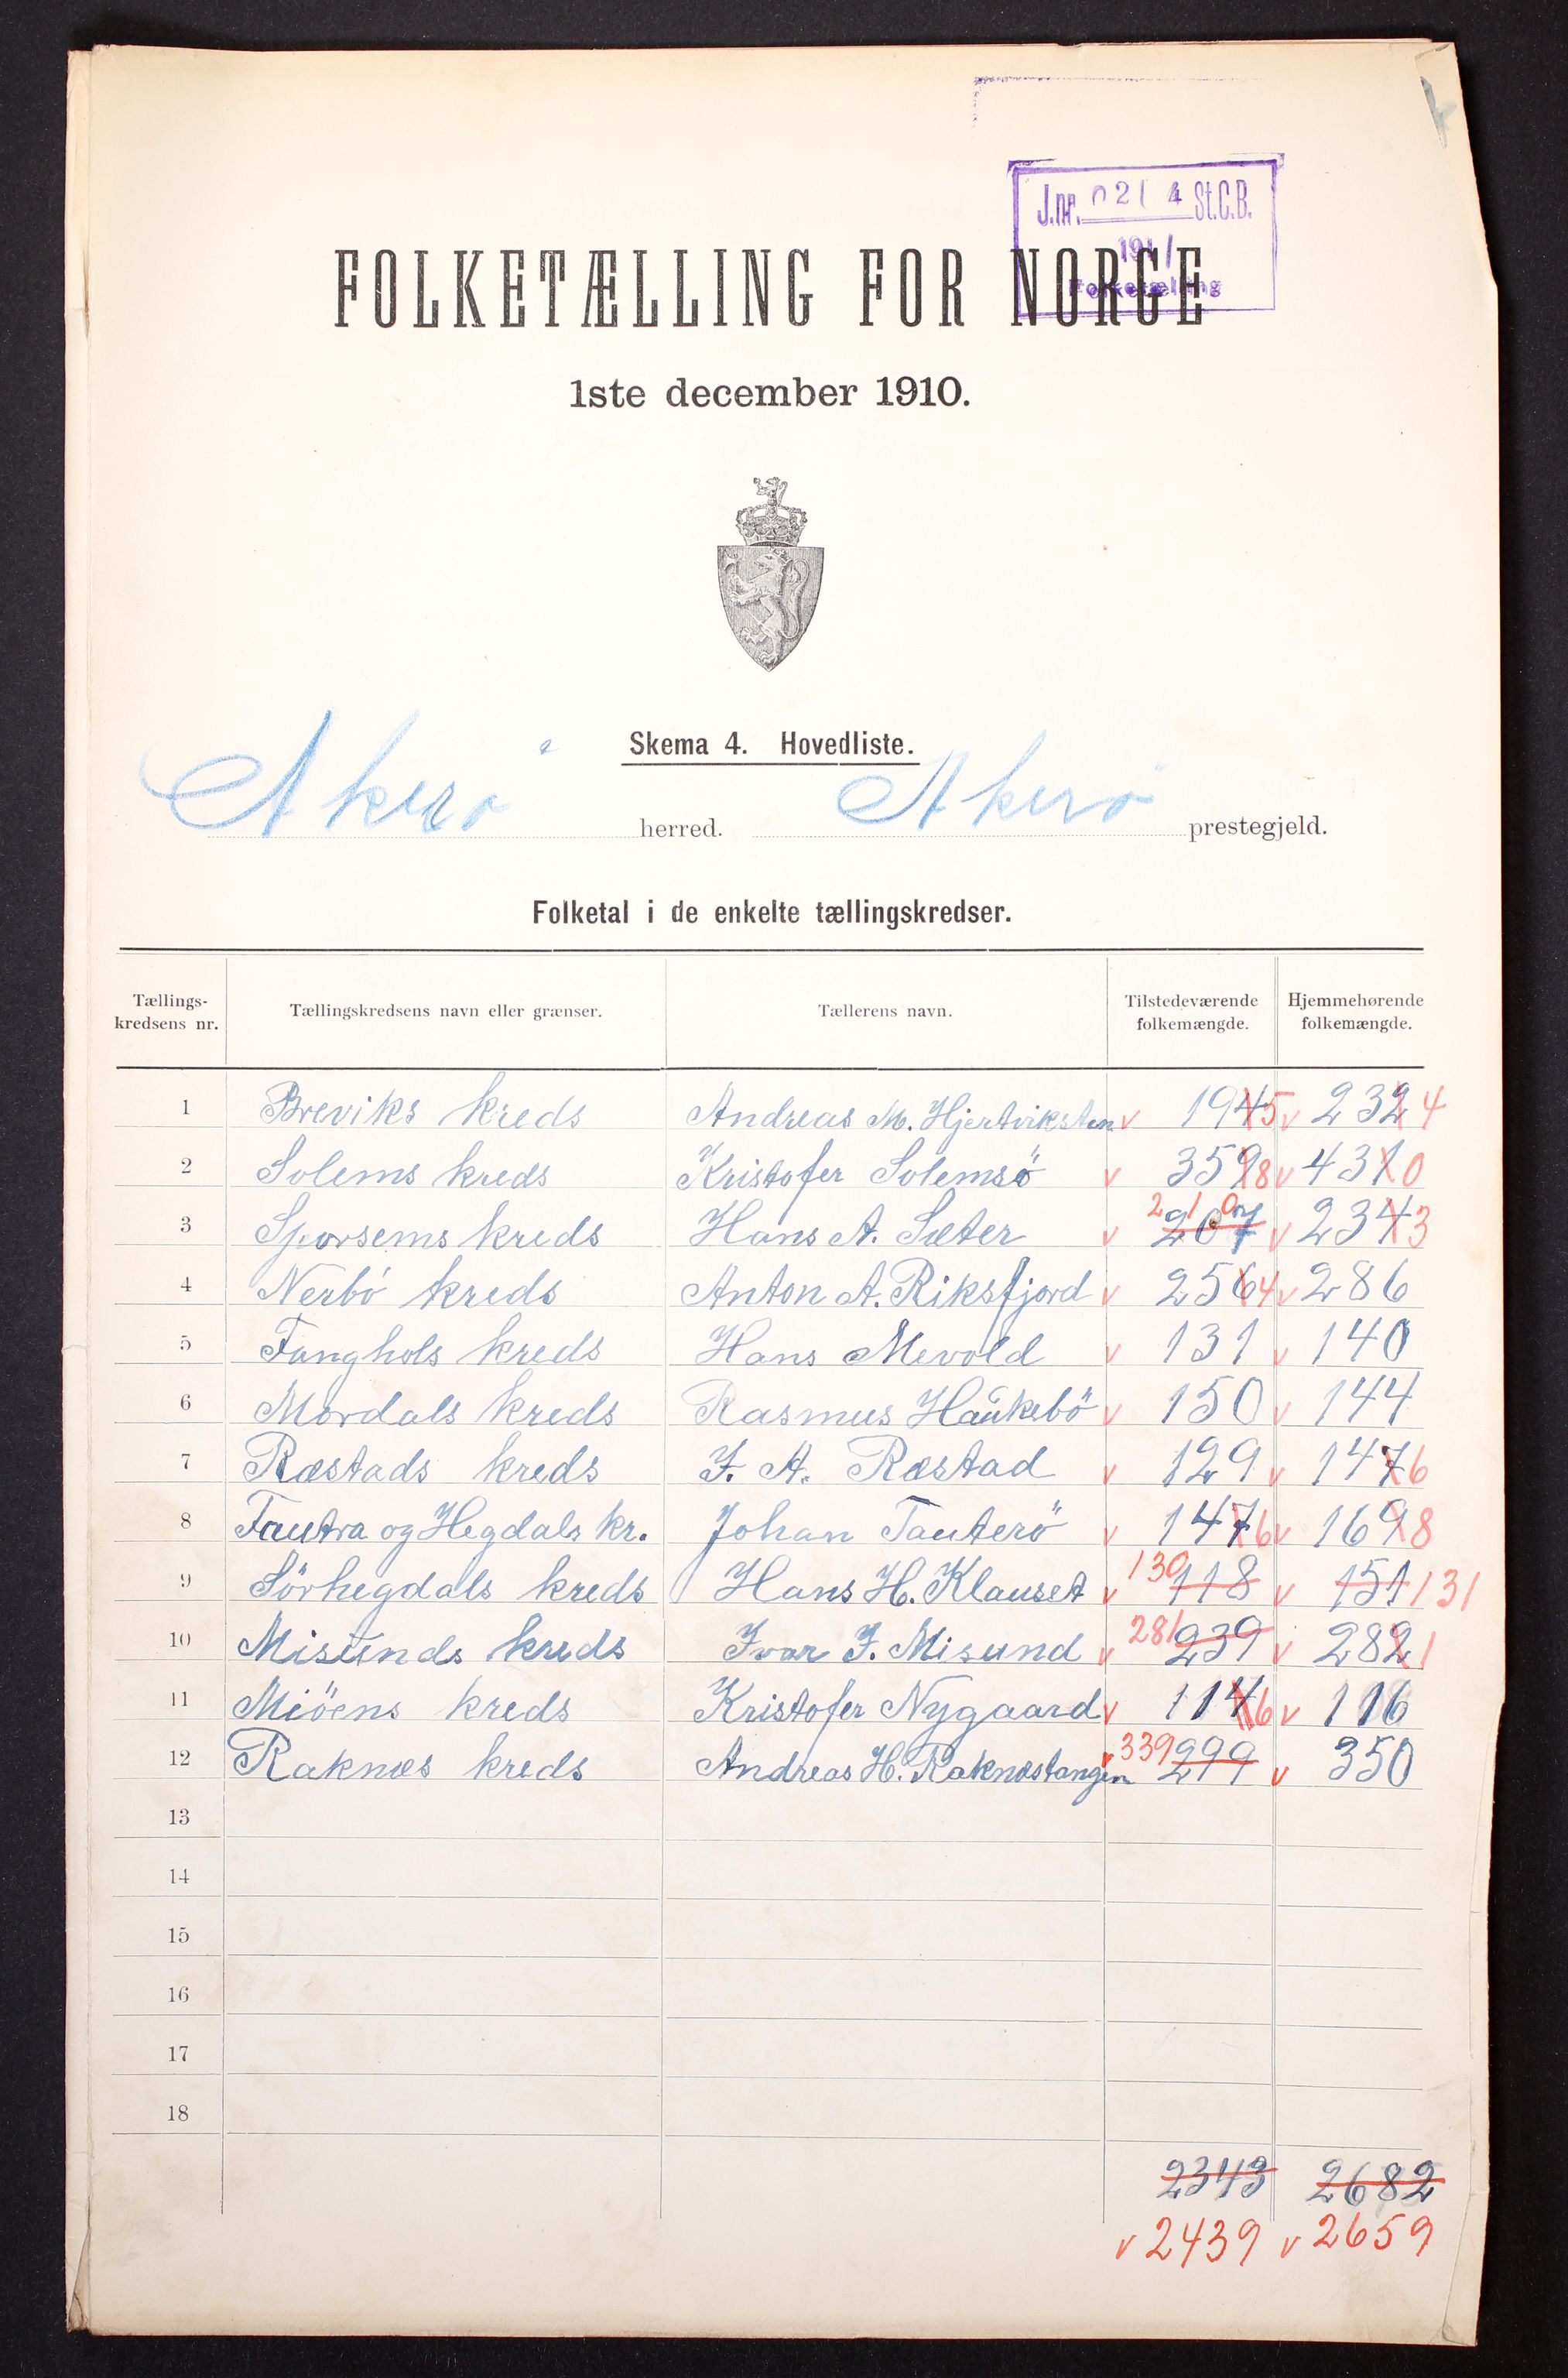 J.nr. 02 4 St.C.B.
191/
Folketælling
FOLKETÆLLING FOR NORGE
1ste december 1910.
Skema 4. Hovedliste.
Akerø herred. Akerø prestegjeld.
Folketal i de enkelte tællingskredser.
Tællingskredsens nr. Tællingskredsens navn eller grænser. Tællerens navn. Tilstedeværende folkemængde. Hjemmehørende folkemængde.
1 Breviks kreds Andreas M. Hjertviksten v 194 5 v 232 4
2 Solems kreds Kristofer Solemsö v 359 8 v 431 0
3 Sporsems kreds Hans A. Sæter v 210 207 v 234 3
4 Nerbö kreds Anton A. Riksfjord v 256 4 v 286
5 Fanghols kreds Hans Mevold v 131 v 140
6 Mordals kreds Rasmus Haukebö v 150 v 144
7 Ræstads kreds J. A. Ræstad v 129 v 147 6
8 Tautra og Hegdals kr. Johan Tauterö v 147 6 v 169 8
9 Sörhegdals kreds Hans H. Klauset v 130 118 v 151 131
10 Misunds kreds Ivar J. Misund v 281 239 v 282 1
11 Miöens kreds Kristofer Nygaard v 114 6 v 116
12 Raknæs kreds Andreas H. Raknæstangen v 339 299 v 350
13
14
15
16
17
18
2343 2682
v 2439 v 2659